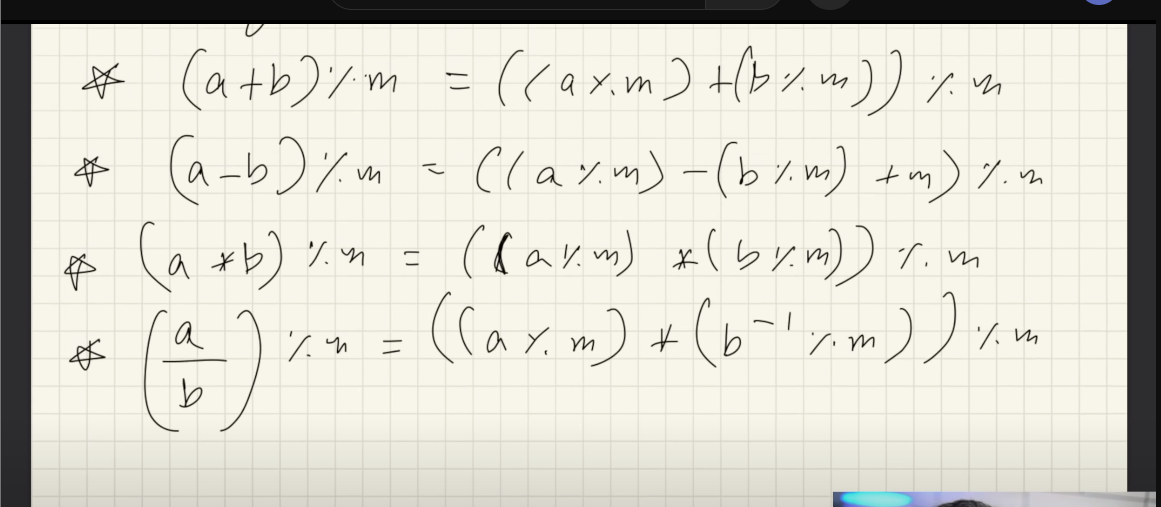 ☆ (a+b) % m = ((a % m) + (b % m)) % m
☆ (a-b) % m = ((a % m) - (b % m) + m) % m
☆ (a * b) % m = ((a % m) * (b % m)) % m
☆ (a/b) % m = ((a % m) * (b⁻¹ % m)) % m